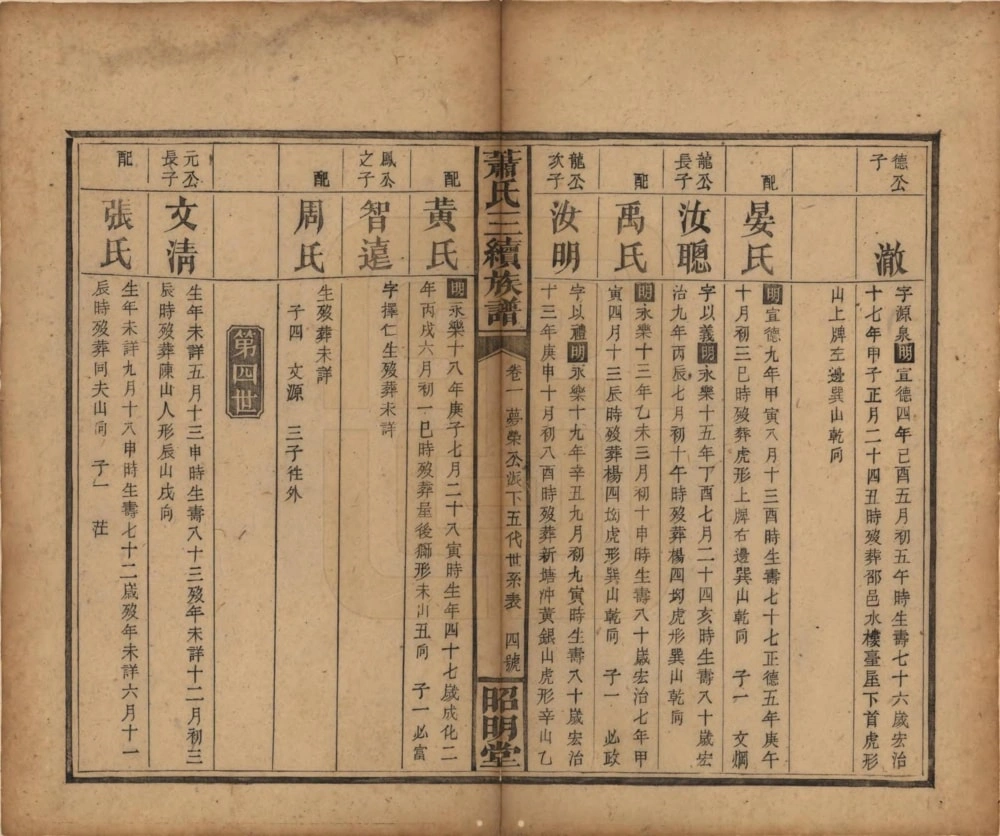 德公
子
澈
字源泉明宣德四年己酉五月初五午時生壽七十六歲宏治
十七年甲子正月二十四丑時歿葬邵邑水樓臺屋下首虎形
山上牌左邊巽山乾向
配
晏氏
明宣德九年甲寅八月十三酉時生壽七十七正德五年庚午
十月初三巳時歿葬虎形上牌右邊巽山乾向 子一 文炯
龍公
長子
汝聰
字以義明永樂十五年丁酉七月二十四亥時生壽八十歲宏
治九年丙辰七月初十午時歿葬楊四坳虎形巽山乾向
配
禹氏
明永樂十三年乙未三月初十申時生壽八十歲宏治七年甲
寅四月十三辰時歿葬楊四坳虎形巽山乾向 子一 必政
龍公
次子
汝明
字以禮明永樂十九年辛丑九月初九寅時生壽八十歲宏治
十三年庚申十月初八酉時歿葬新塘沖黃銀山虎形辛山乙
蕭氏三續族譜
卷一 夢榮公派下五代世系表 四號
昭明堂
配
黃氏
明永樂十八年庚子七月二十八寅時生年四十七歲成化二
年丙戌六月初一巳時歿葬屋後獅形未山丑向 子一 必富
鳳公
之子
智遠
字擇仁生歿葬未詳
配
周氏
生歿葬未詳
子四 文源 三子往外
第四世
元公
長子
文清
生年未詳五月十三申時生壽八十三歿年未詳十二月初三
辰時歿葬陳山人形辰山戌向
配
張氏
生年未詳九月十八申時生壽七十二歲歿年未詳六月十一
辰時歿葬同夫山向 子一 荘